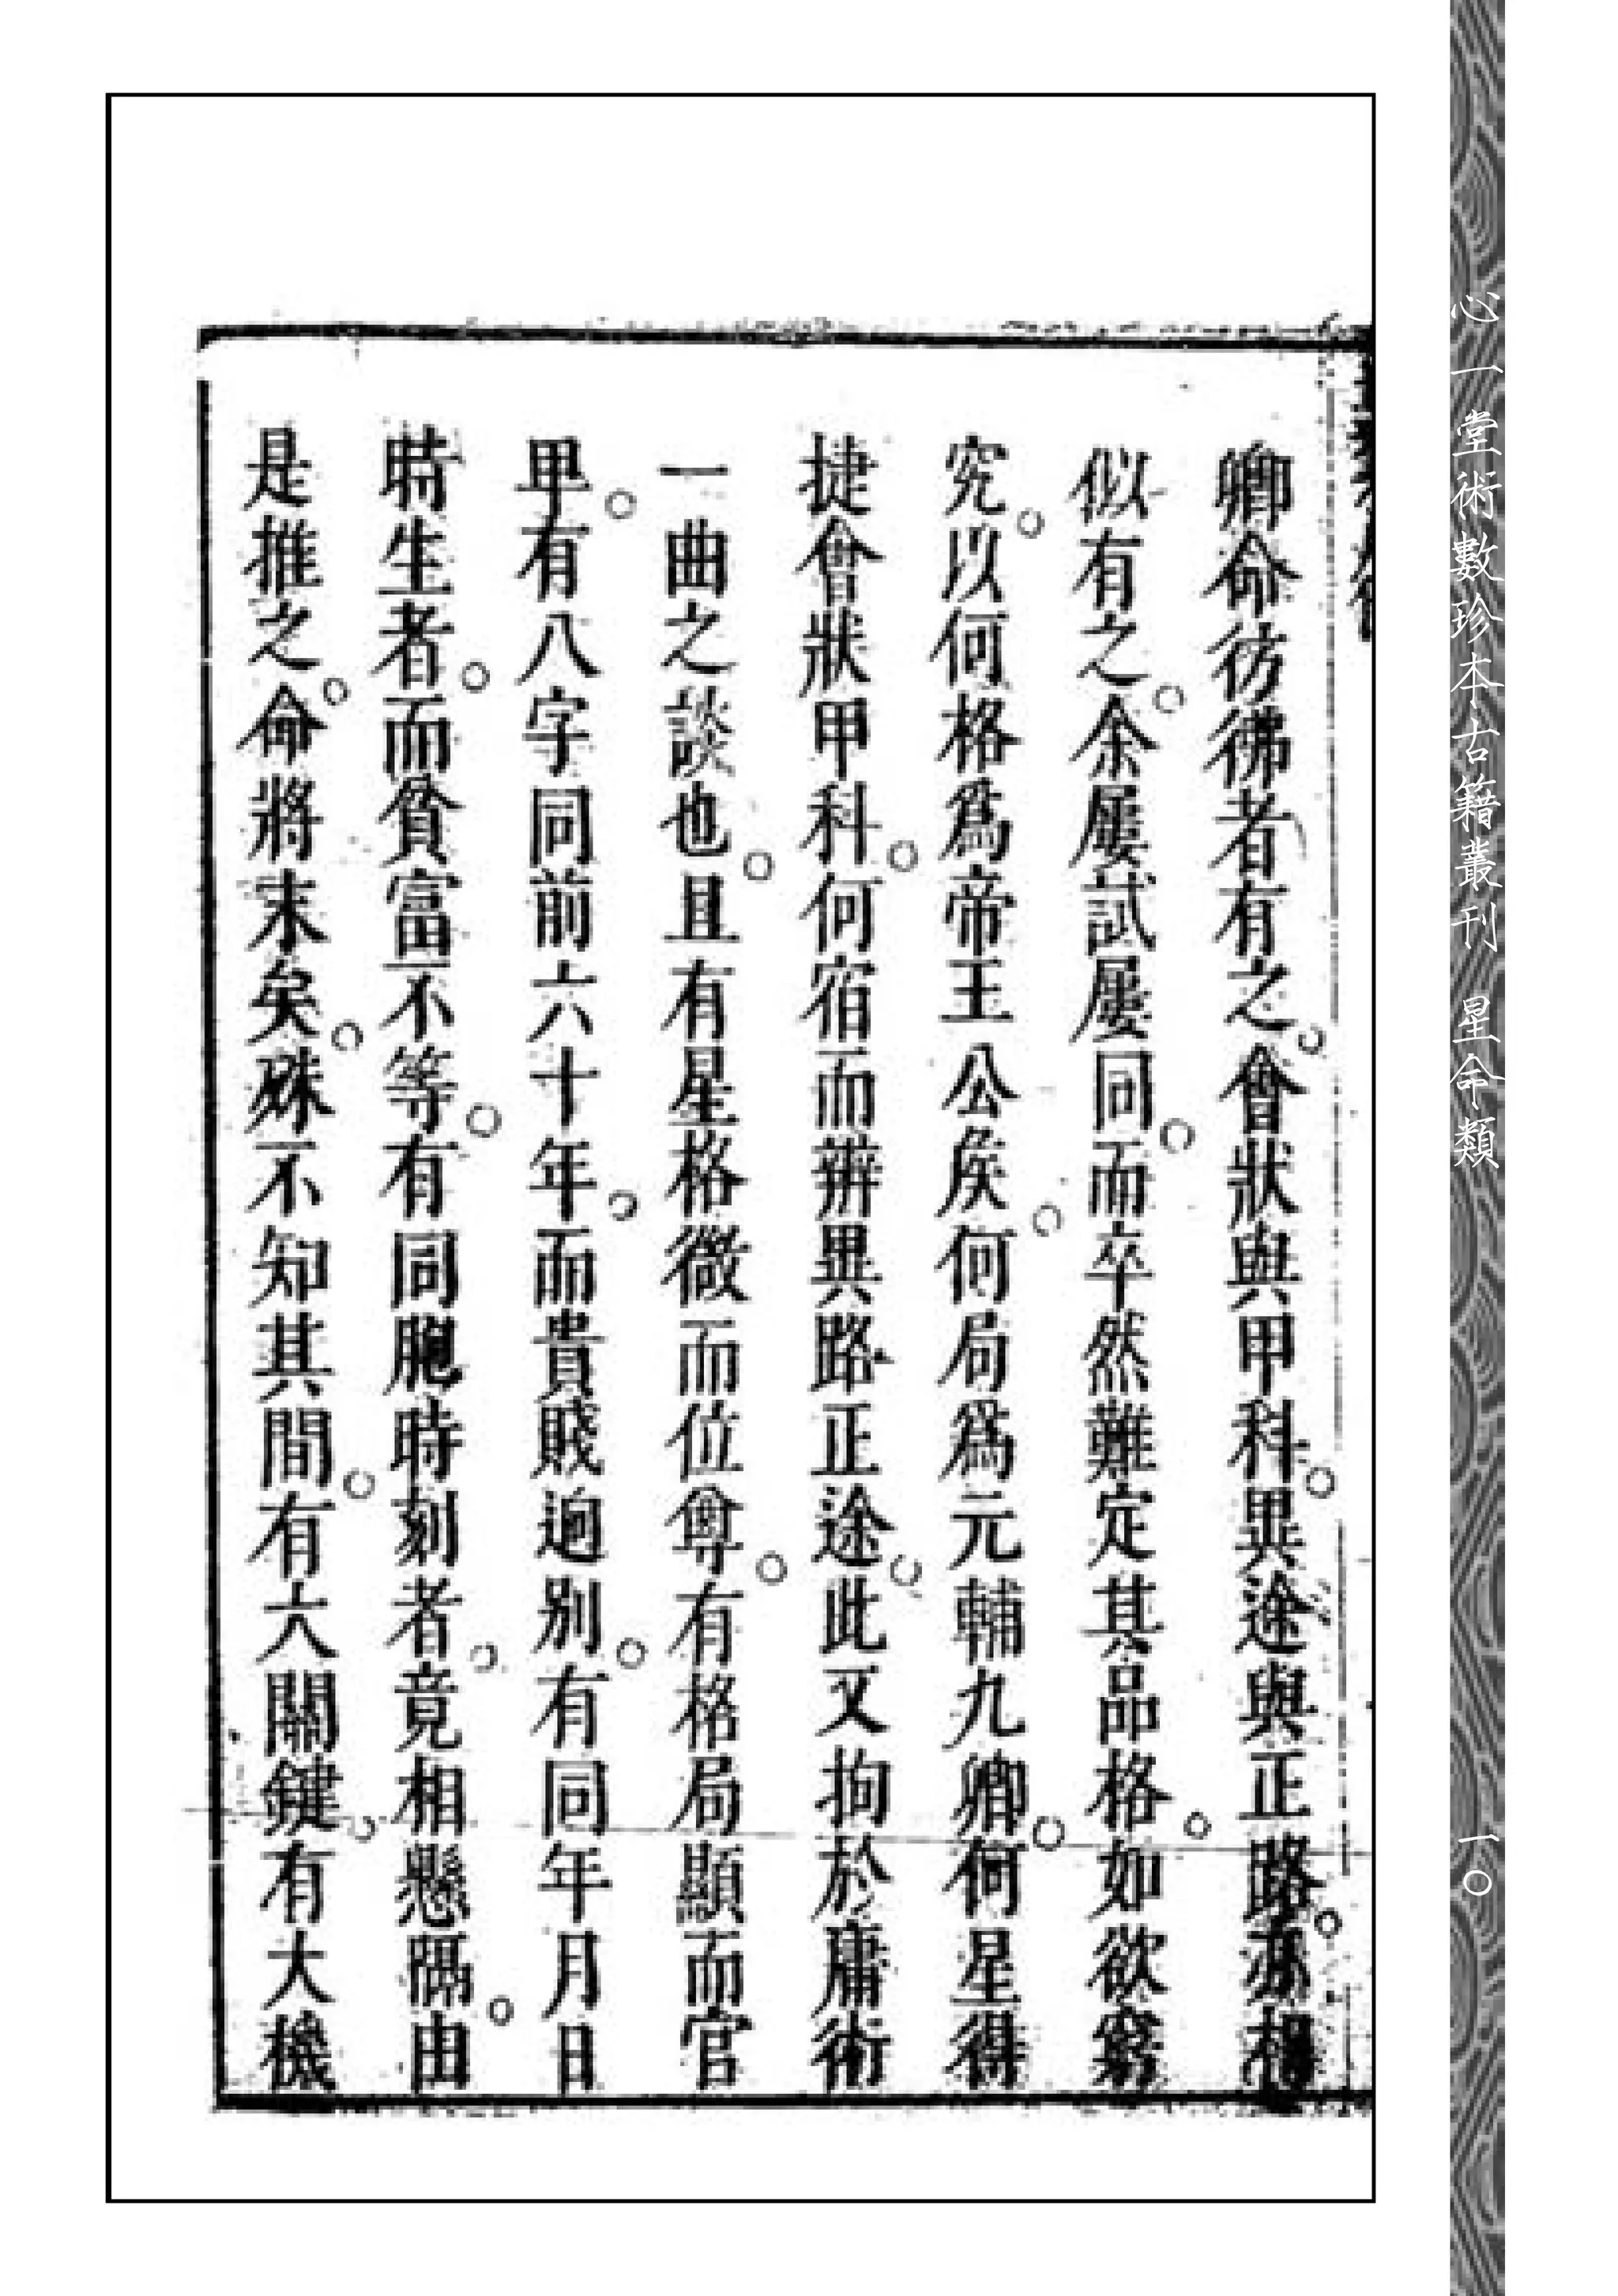 心一堂術數珍本古籍叢刊　星命類
一〇
卿命彷彿者有之。會狀與甲科。異途與正路。亦相
似有之。余屢試屢同。而卒然難定其品格。如欲窮
究。以何格爲帝王公矦。何局爲元輔九卿。何星得
捷會狀甲科。何宿而辨異路正途。此又拘於庸術
一曲之談也。且有星格微而位尊。有格局顯而官
卑。有八字同前六十年。而貴賤逈别。有同年月日
時生者。而貧富不等。有同胞時刻者。竟相懸隔。由
是推之。命將末矣。殊不知其間。有六關鍵。有大機